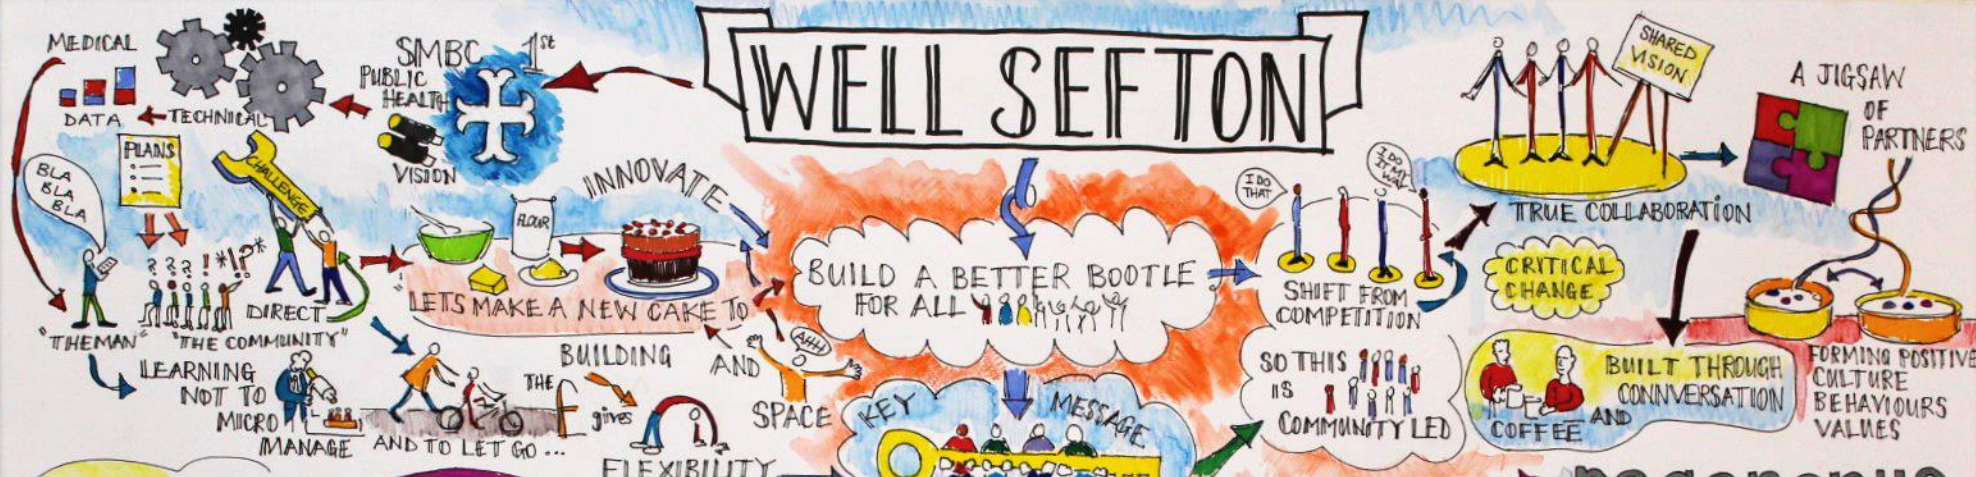 WELL SEFTON
MEDICAL
DATA
TECHNICAL
SMBC
1st
PUBLIC
HEALTH
VISION
PLANS
CHALLENGE
BLA
BLA
BLA
"THEMAN"
? ? ? ! *!!?*
"THE COMMUNITY"
DIRECT
LEARNING
NOT TO
MICRO
MANAGE
AND TO LET GO ...
INNOVATE
FLOUR
LETS MAKE A NEW CAKE TO
BUILDING
AND
SPACE
AHH
THE £
gives
FLEXIBILITY
BUILD A BETTER BOOTLE
FOR ALL
KEY
MESSAGE
I DO
THAT
I DO
IT MY
WAY
SHIFT FROM
COMPETITION
SO THIS
IS
COMMUNITY LED
SHARED
VISION
TRUE COLLABORATION
A JIGSAW
OF
PARTNERS
CRITICAL
CHANGE
BUILT THROUGH
CONNVERSATION
AND
COFFEE
FORMING POSITIVE
CULTURE
BEHAVIOURS
VALUES